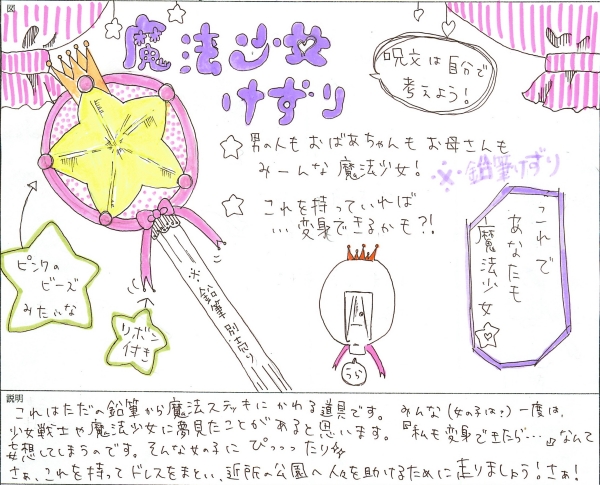 図
魔法少女
けずり
呪文は自分で
考えよう!
男の人もおばあちゃんもお母さんも
みーんな魔法少女!
※鉛筆けずり
これを持っていれば
…変身できるかも?!
これで
あなたも
魔法少女
ピンクの
ビーズ
みたいな
リボン
付き
※鉛筆別売り
うら
説明
これはただの鉛筆から魔法ステッキにかわる道具です。 みんな(女の子は?)一度は、
少女戦士や魔法少女に夢見たことがあると思います。『私も変身できたら…』なんて
妄想してしまうのです。そんな女の子にぴっったり
さぁ、これを持ってドレスをまとい、近所の公園へ人々を助けるために走りましょう!さぁ!